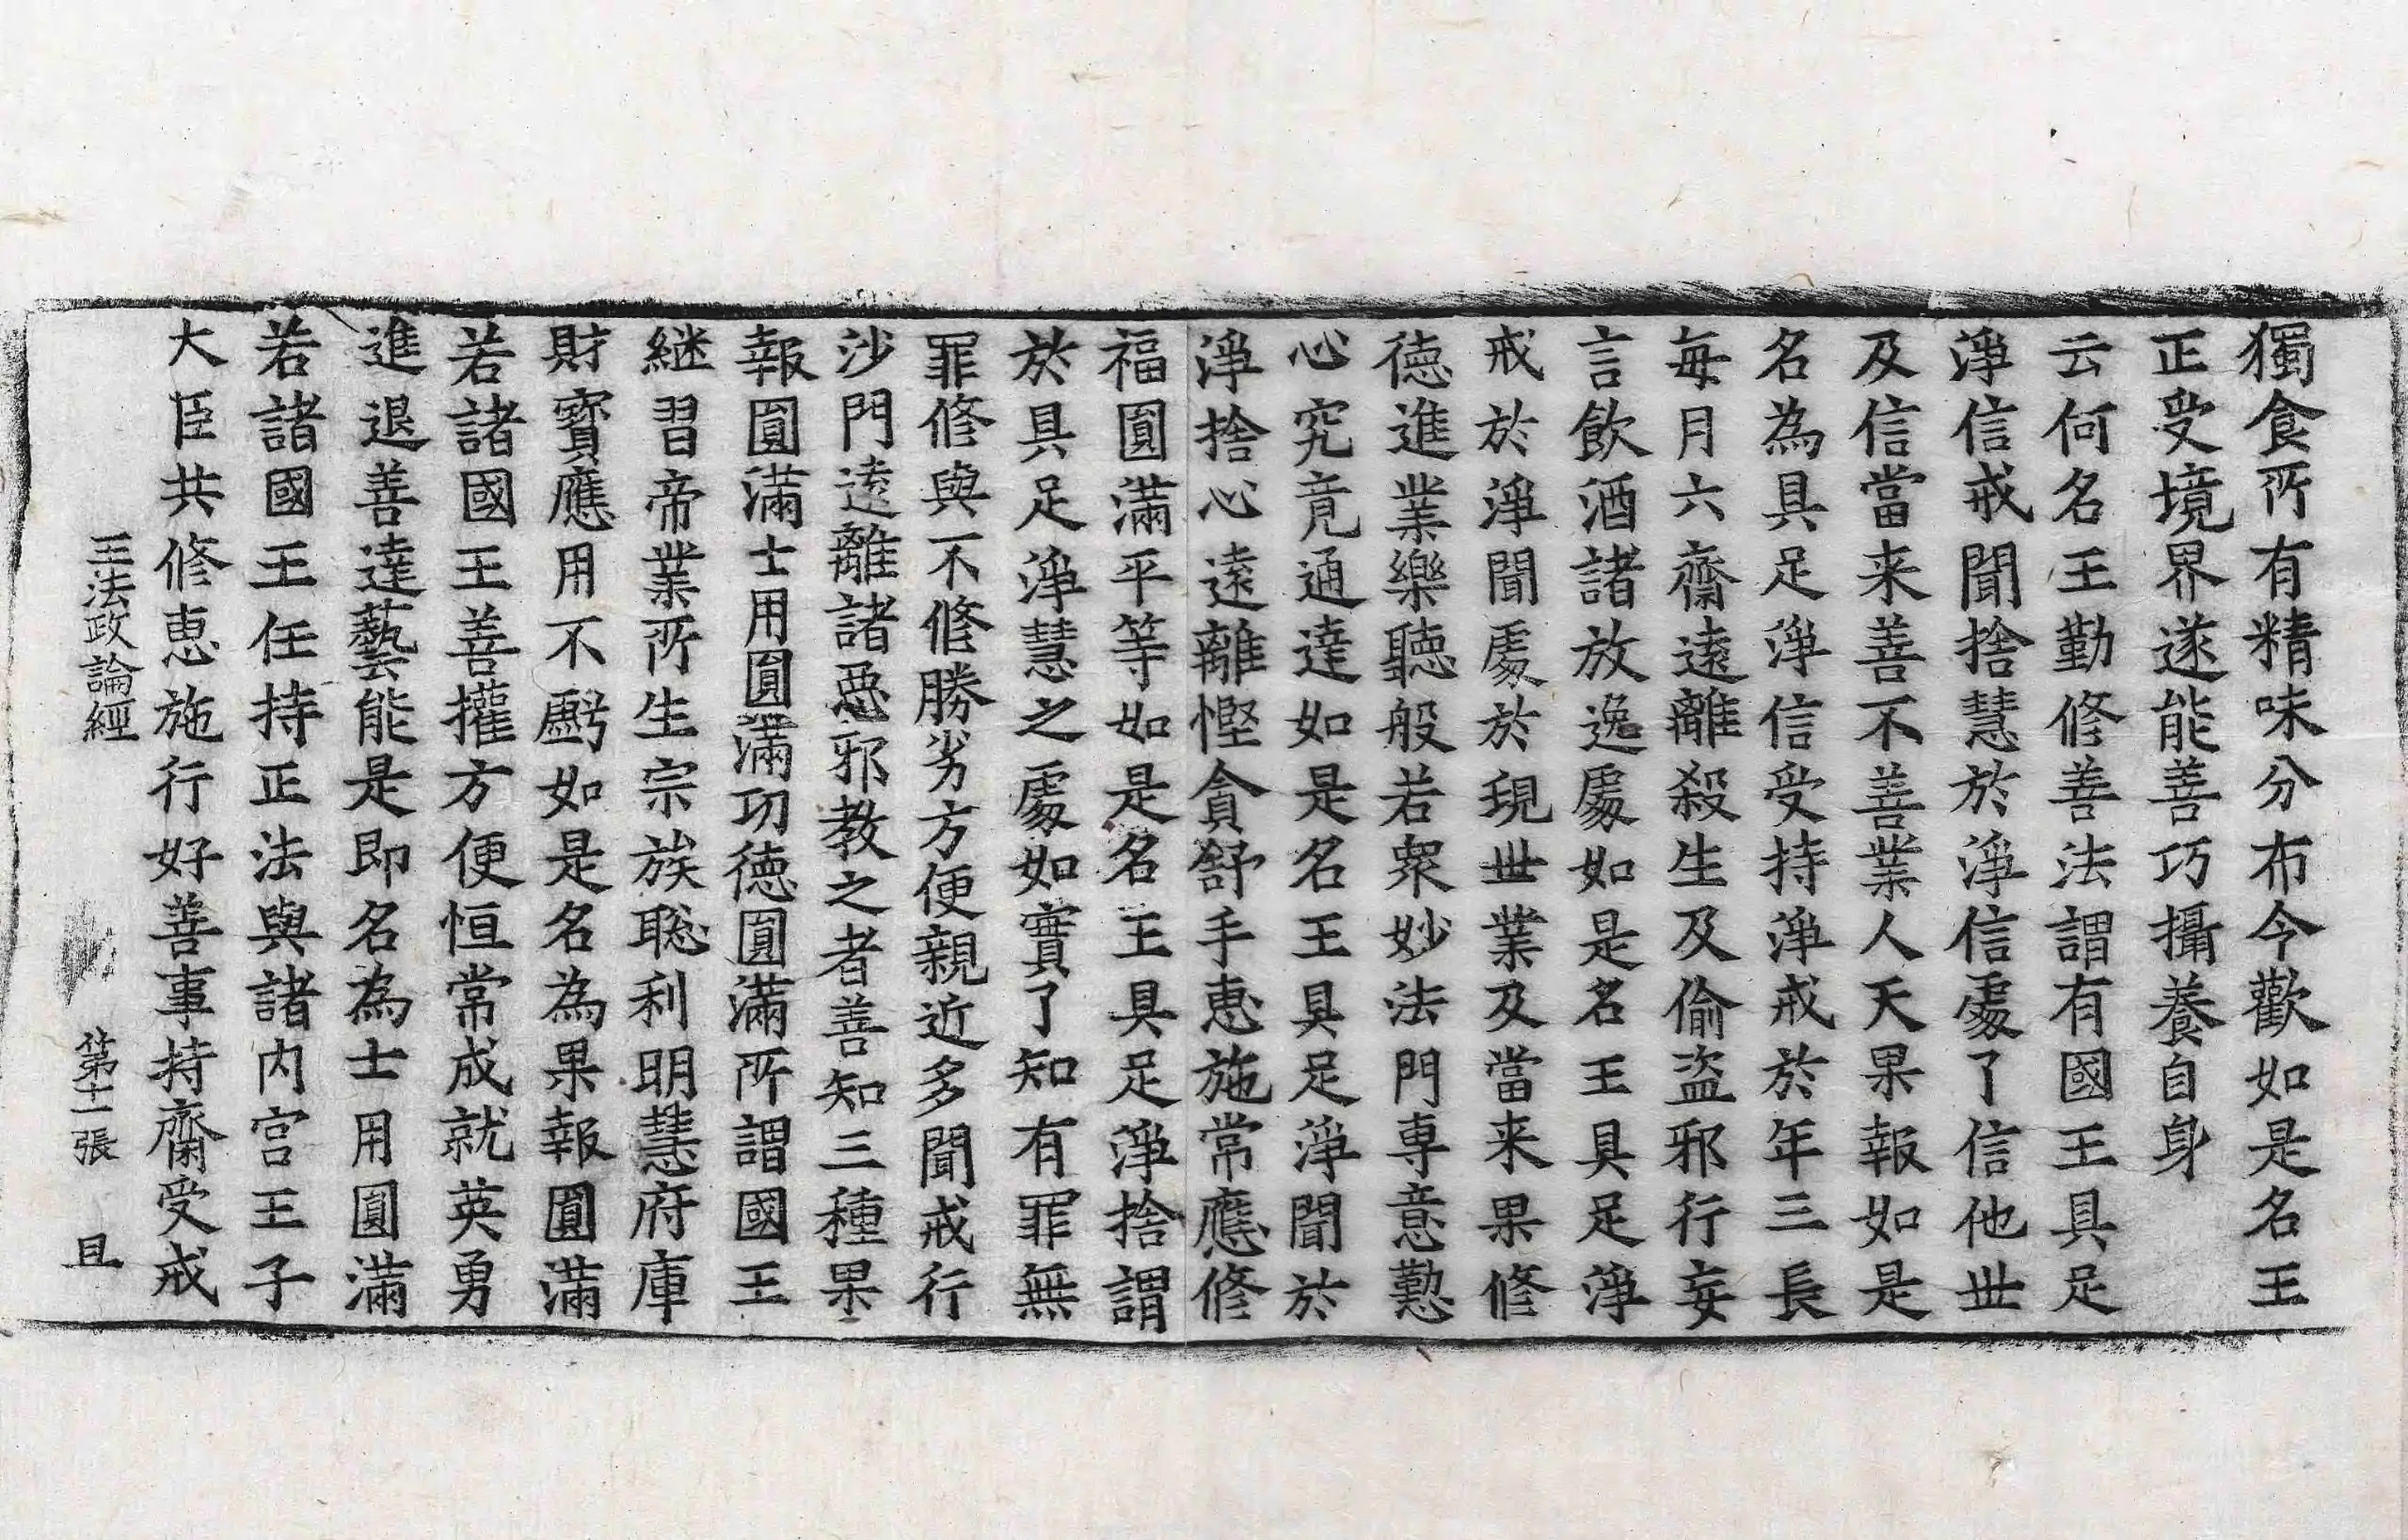 獨食所有精味分布今歡如是名王
正受境界遂能善巧攝養自身
云何名王勤修善法謂有國王具足
淨信戒聞捨慧於淨信處了信他世
及信當来善不善業人天果報如是
名為具足淨信受持淨戒於年三長
每月六齋遠離殺生及偷盗邪行妄
言飲酒諸放逸處如是名王具足淨
戒於淨聞處於現世業及當来果修
德進業樂聽般若衆妙法門専意懃
心究竟通達如是名王具足淨聞於
淨捨心遠離慳貪舒手惠施常應修
福圓滿平等如是名王具足淨捨謂
於具足淨慧之處如實了知有罪無
罪修與不修勝劣方便親近多聞戒行
沙門遠離諸惡邪教之者善知三種果
報圓滿士用圓滿功德圓滿所謂國王
継習帝業所生宗族聡利明慧府庫
財寳應用不虧如是名為果報圓滿
若諸國王善權方便恒常成就英勇
進退善達藝能是即名為士用圓滿
若諸國王任持正法與諸内宫王子
大臣共修惠施行好善事持齋受戒
王法政論經 第十一張 且